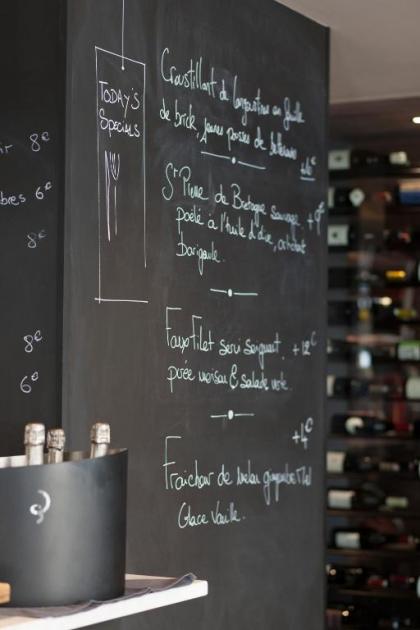 8€
bres 6€
8€
8€
6€
TODAY'S
SPECIALS
Croustillant de langoustine en feuille
de brick, jeunes pousses de betteraves
St Pierre de Bretagne Sauvage + 9€
poêlé à l'huile d'olive, artichaut
barigoule.
Faux Filet servi saignant. + 12€
purée maison & salade verte.
+4€
Fraîcheur de melon gingembre Miel
Glace Vanille.